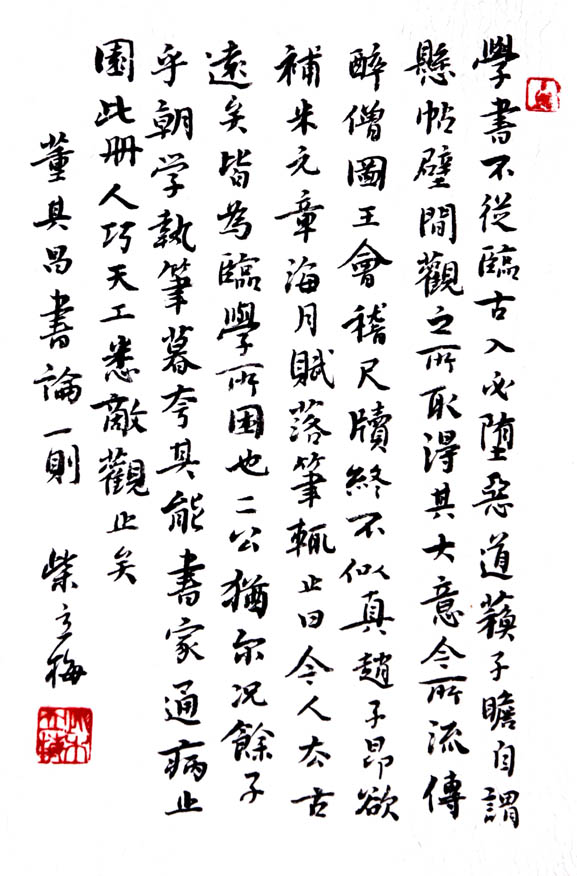 學書不從臨古入必墮惡道蘇子瞻自謂
懸帖壁間觀之所取得其大意今所流傳
醉僧圖王會稽尺牘終不似真趙子昂欲
補米元章海月賦落筆輒止曰今人去古
遠矣皆為臨學所困也二公猶尔況餘子
乎朝学執筆暮夸其能書家通病止
園此册人巧天工悉敵觀止矣
董其昌書論一則
柴立梅